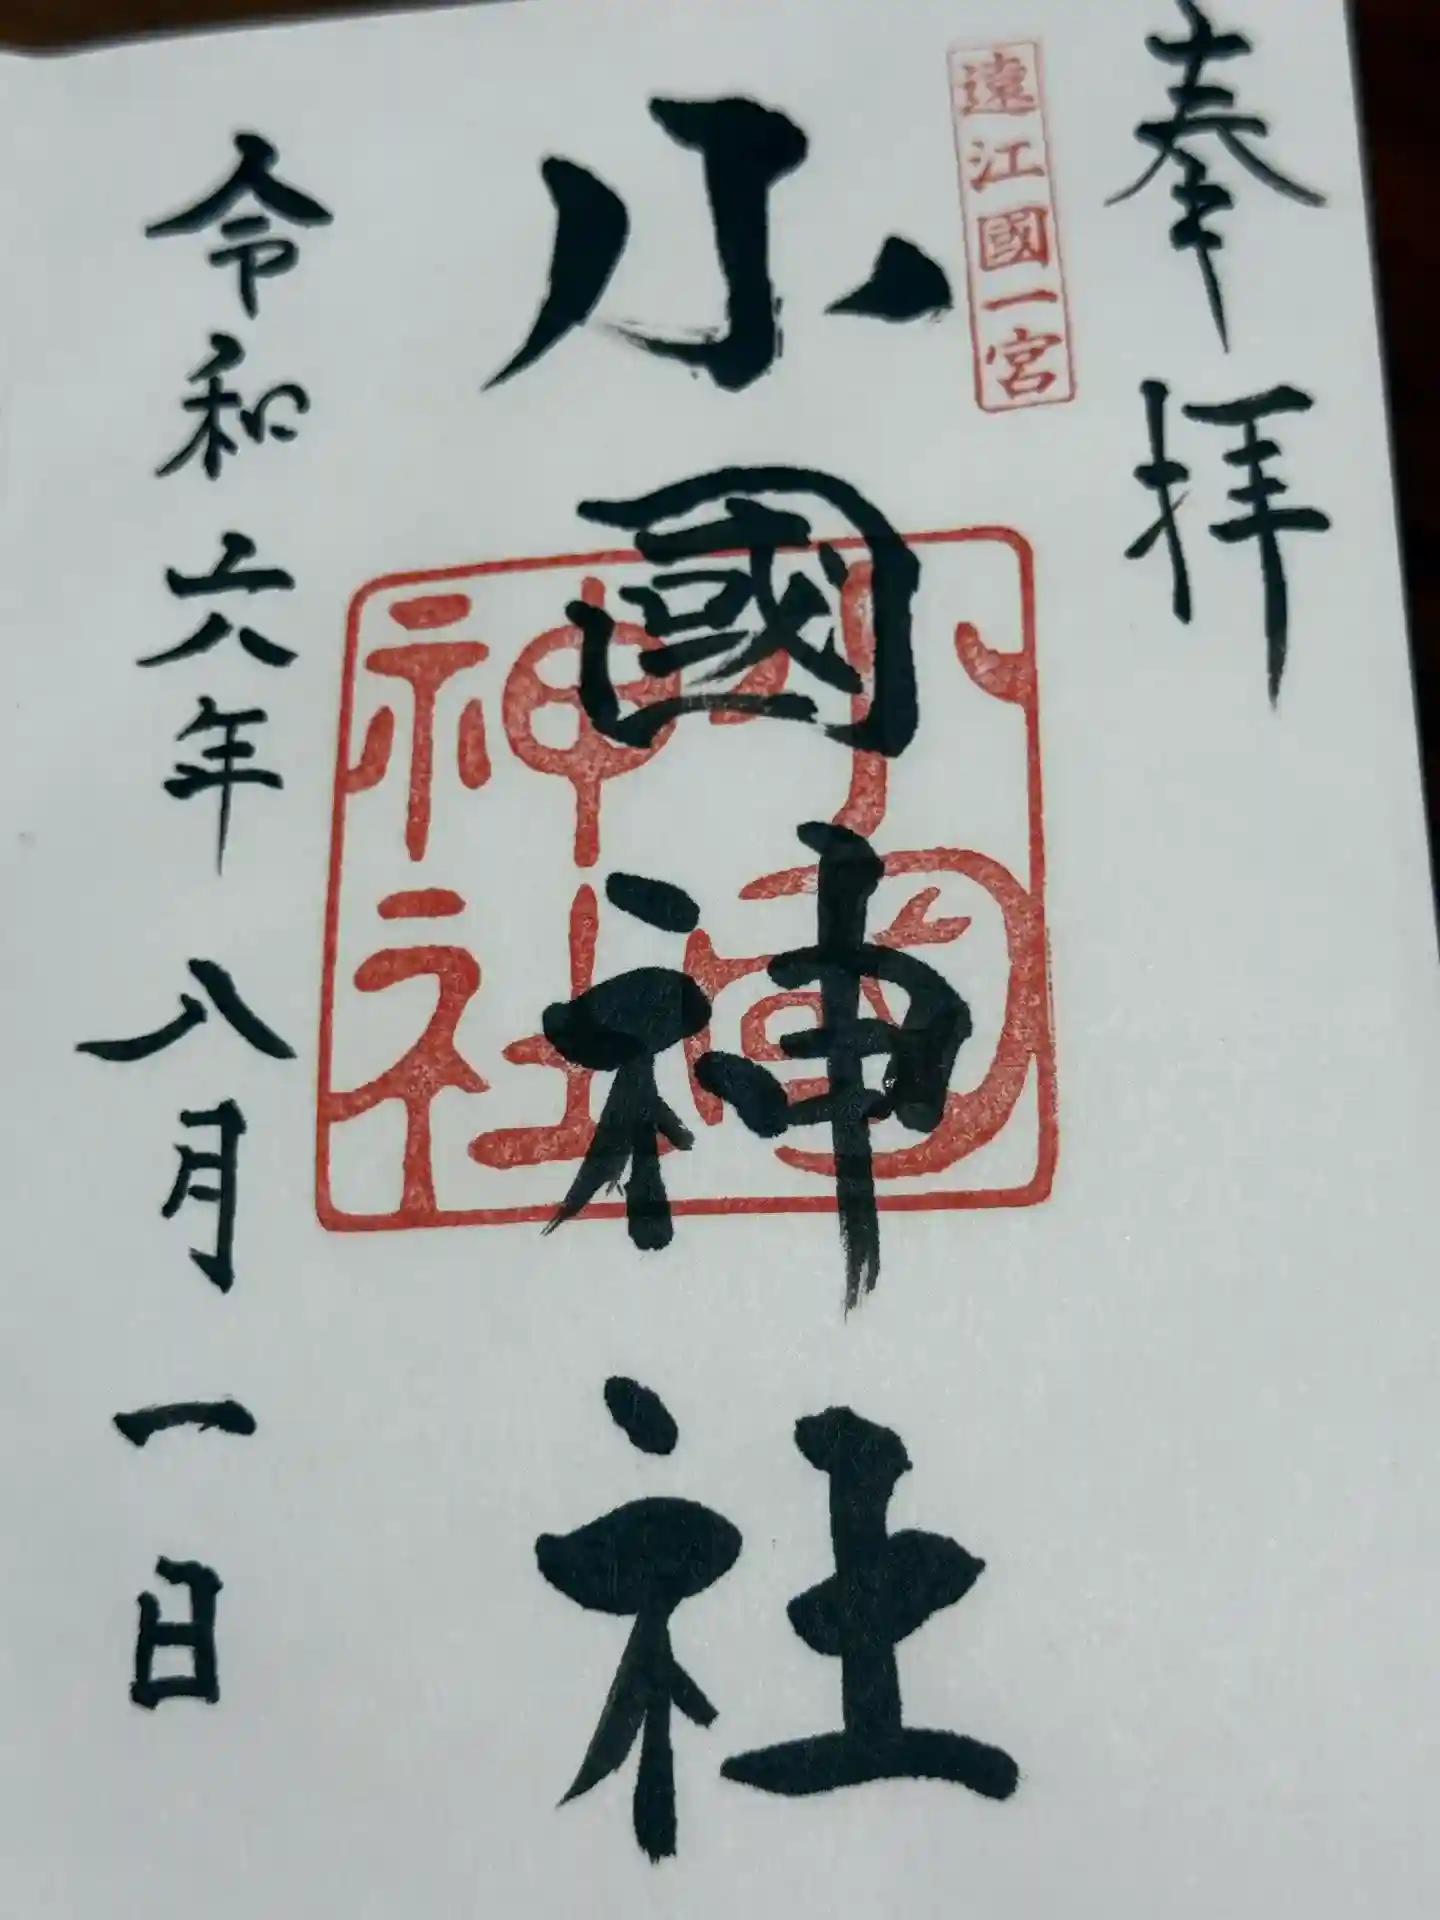 奉拝
遠江國一宮
小國神社
小國
神社
令和六年八月一日